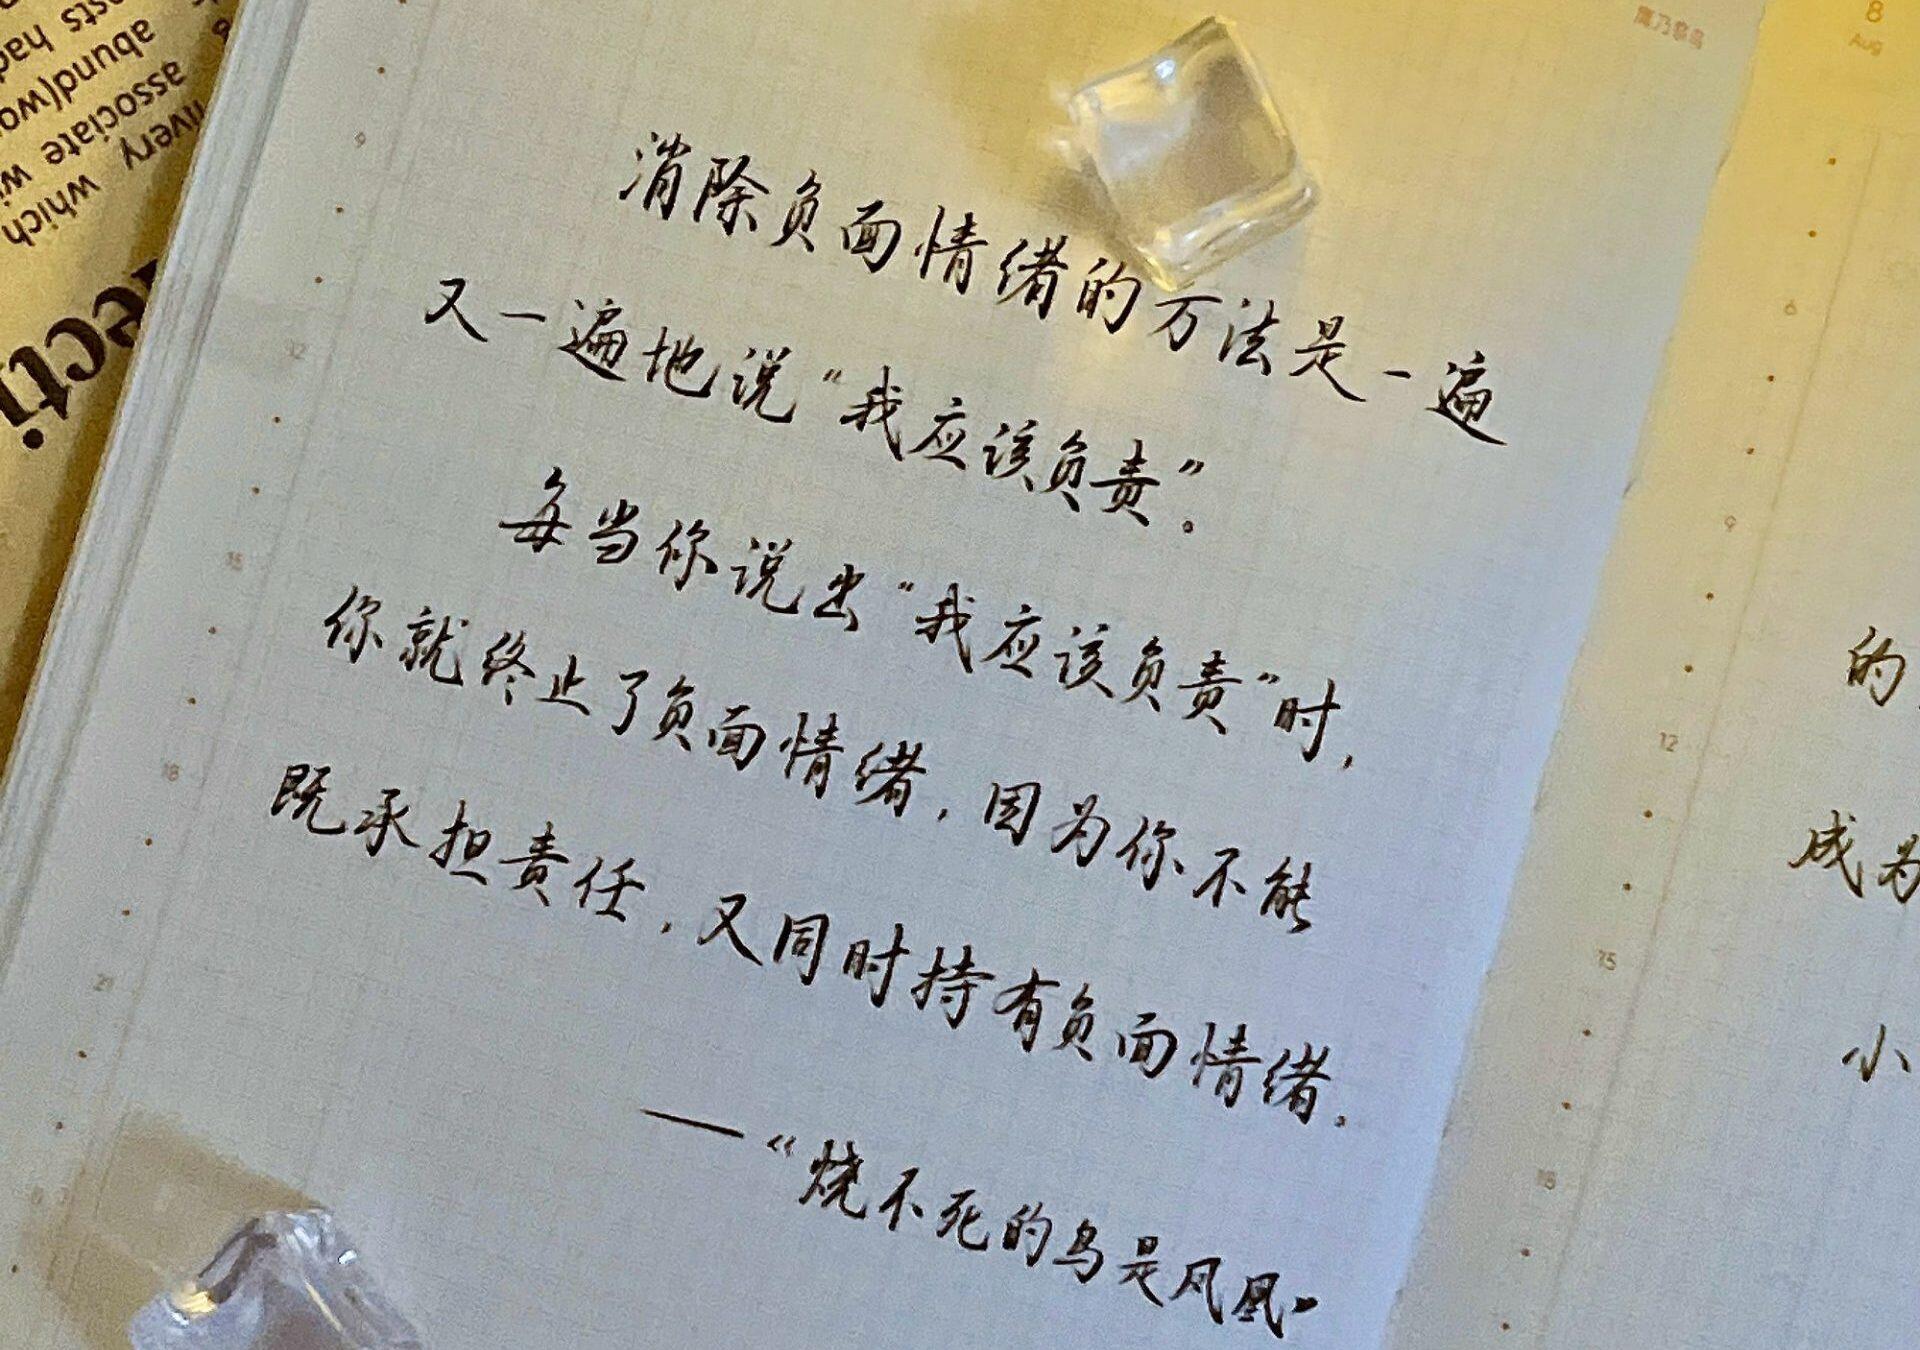 消除负面情绪的方法是一遍
又一遍地说“我应该负责”。
每当你说出“我应该负责”时，
你就终止了负面情绪，因为你不能
既承担责任，又同时持有负面情绪。
——“烧不死的鸟是凤凰”
的
成为
小
8
Aug
9
12
15
18
21
6
9
12
15
18
sts had
abund(wo
associate wi
livery
which
ecti